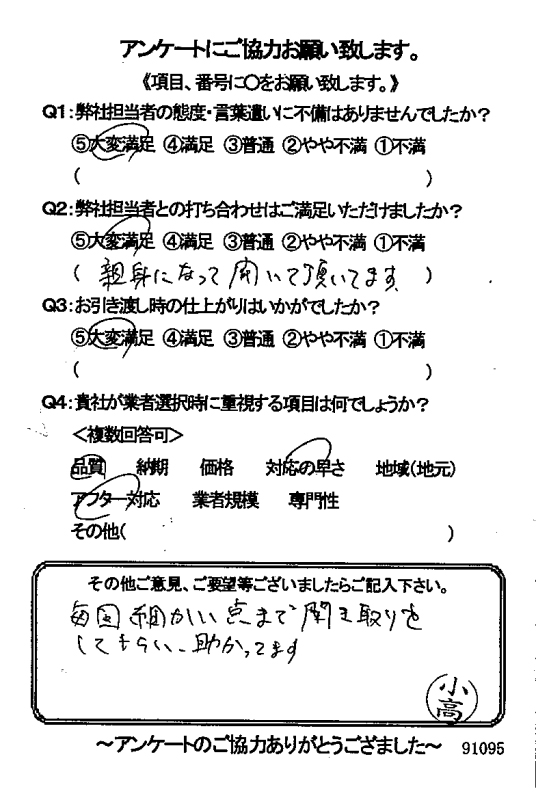 アンケートにご協力お願い致します。
《項目、番号に〇をお願い致します。》
Q1:弊社担当者の態度・言葉遣いに不備はありませんでしたか?
⑤大変満足 ④満足 ③普通 ②やや不満 ①不満
( )
Q2:弊社担当者との打ち合わせはご満足いただけましたか?
⑤大変満足 ④満足 ③普通 ②やや不満 ①不満
( 親身になって聞いて頂いてます )
Q3:お引き渡し時の仕上がりはいかがでしたか?
⑤大変満足 ④満足 ③普通 ②やや不満 ①不満
( )
Q4:貴社が業者選択時に重視する項目は何でしょうか?
<複数回答可>
品質 納期 価格 対応の早さ 地域(地元)
アフター対応 業者規模 専門性
その他( )
その他ご意見、ご要望等ございましたらご記入下さい。
毎回細かい点まで聞き取りを
してもらい、助かってます
小高
～アンケートのご協力ありがとうござました～ 91095